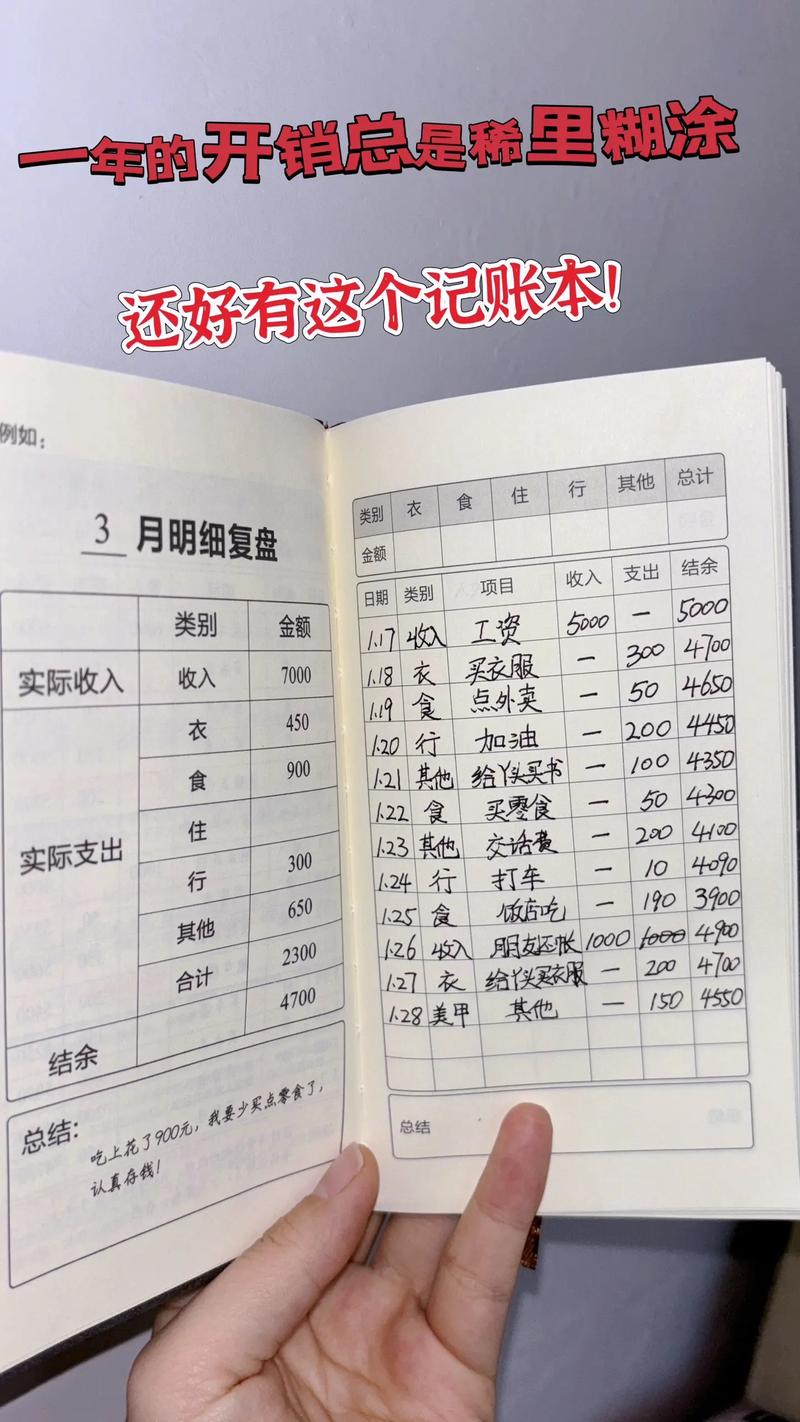 一年的开销总是稀里糊涂
还好有这个记账本!
例如:
3 月明细复盘
类别 金额
实际收入 收入 7000
实际支出
衣 450
食 900
住
行 300
其他 650
合计 2300
4700
结余
总结:
吃上花了900元,我要少买点零食了,
认真存钱!
类别 衣 食 住 行 其他 总计
金额
日期 类别 项目 收入 支出 结余
1.17 收入 工资 5000 — 5000
1.18 衣 买衣服 — 300 4700
1.19 食 点外卖 — 50 4650
1.20 行 加油 — 200 4450
1.21 其他 给丫头买书 — 100 4350
1.22 食 买零食 — 50 4300
1.23 其他 交话费 — 200 4100
1.24 行 打车 — 10 4090
1.25 食 饭店吃 — 190 3900
1.26 收入 朋友还帐 1000 1000 4900
1.27 衣 给丫头买衣服 — 200 4700
1.28 美甲 其他 — 150 4550
总结